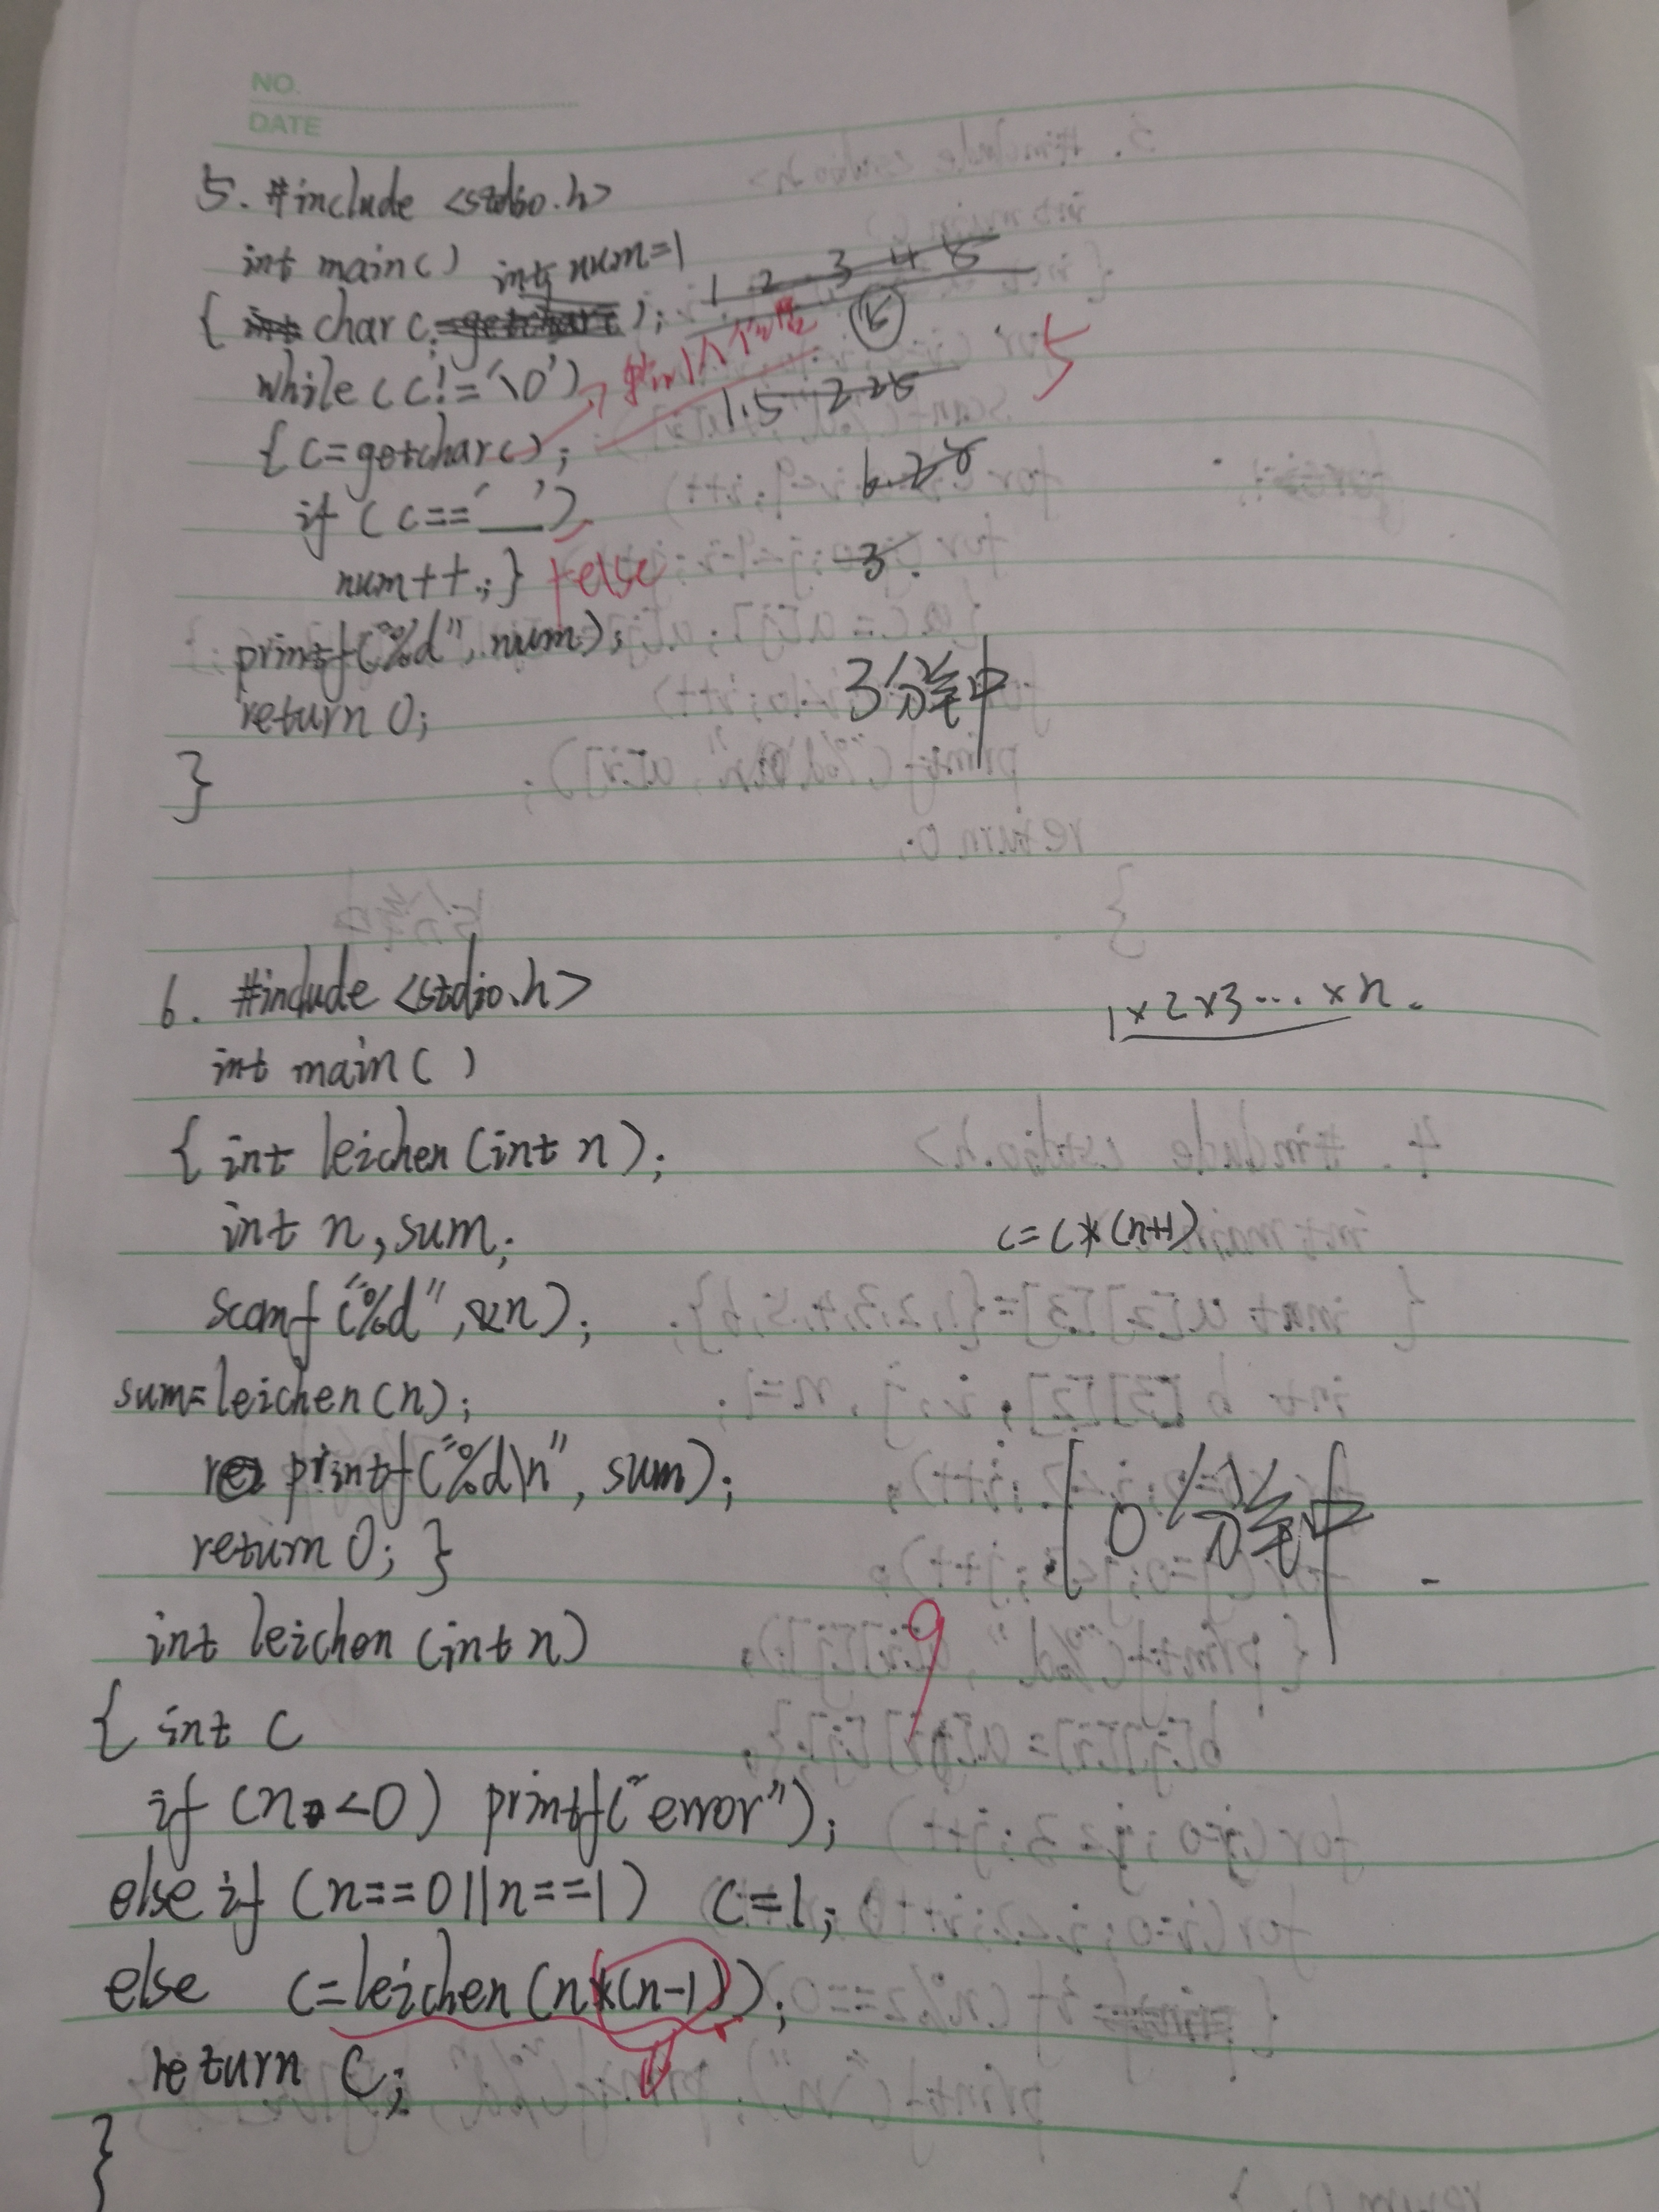 NO.
DATE
5. #include <stdio.h>
int main()
int num=1
{ char c ;
1 2 3 4 5
15
while (c!='\0')
5
1.5 2.25
{ c=getchar();
6.28
if (c==' ')
num++;} else
3.
printf("%d", num);
3分笔中
return 0;
}
6. #include <stdio.h>
1×2×3…×n.
int main()
{ int leichen (int n);
int n, sum;
c=c*(n+1)
scanf("%d", &n);
sum=leichen(n);
printf("%d\n", sum);
return 0; }
10分笔中
int leichen (int n)
9
{ int c
if (n<0) printf("error");
else if (n==0||n==1) c=1;
else c=leichen(n*(n-1));
return c;
}